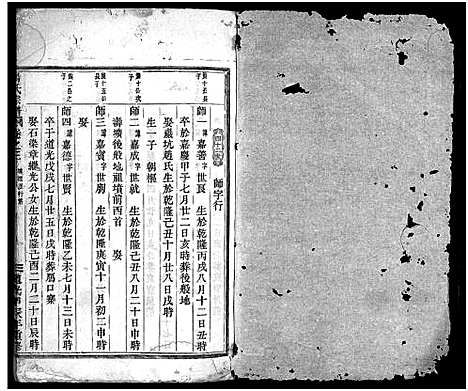 師字行
師一 諱嘉善字世良 生於乾隆丙戌八月十二日時
卒於嘉慶甲子七月廿二日亥時葬後般地
娶嚴坑趙氏生於乾隆己丑十月廿八日戌時
生一子 朝樞
師二 諱嘉成字世就 生於乾隆己丑八月二十日時
壽壙後般地祖墳前丙首 娶
師三 諱嘉賓字世朋 生於乾隆庚寅十一月初二申時
娶
師四 諱嘉德字世賢 生於乾隆乙未七月十三日未時
卒于道光戊戌七月廿五日戌時葬廟口寨
娶石梁章繼光公女生於乾隆己酉二月二十日辰時